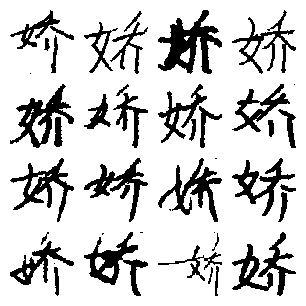 娇娇娇娇
娇娇娇娇
娇娇娇娇
娇娇娇娇